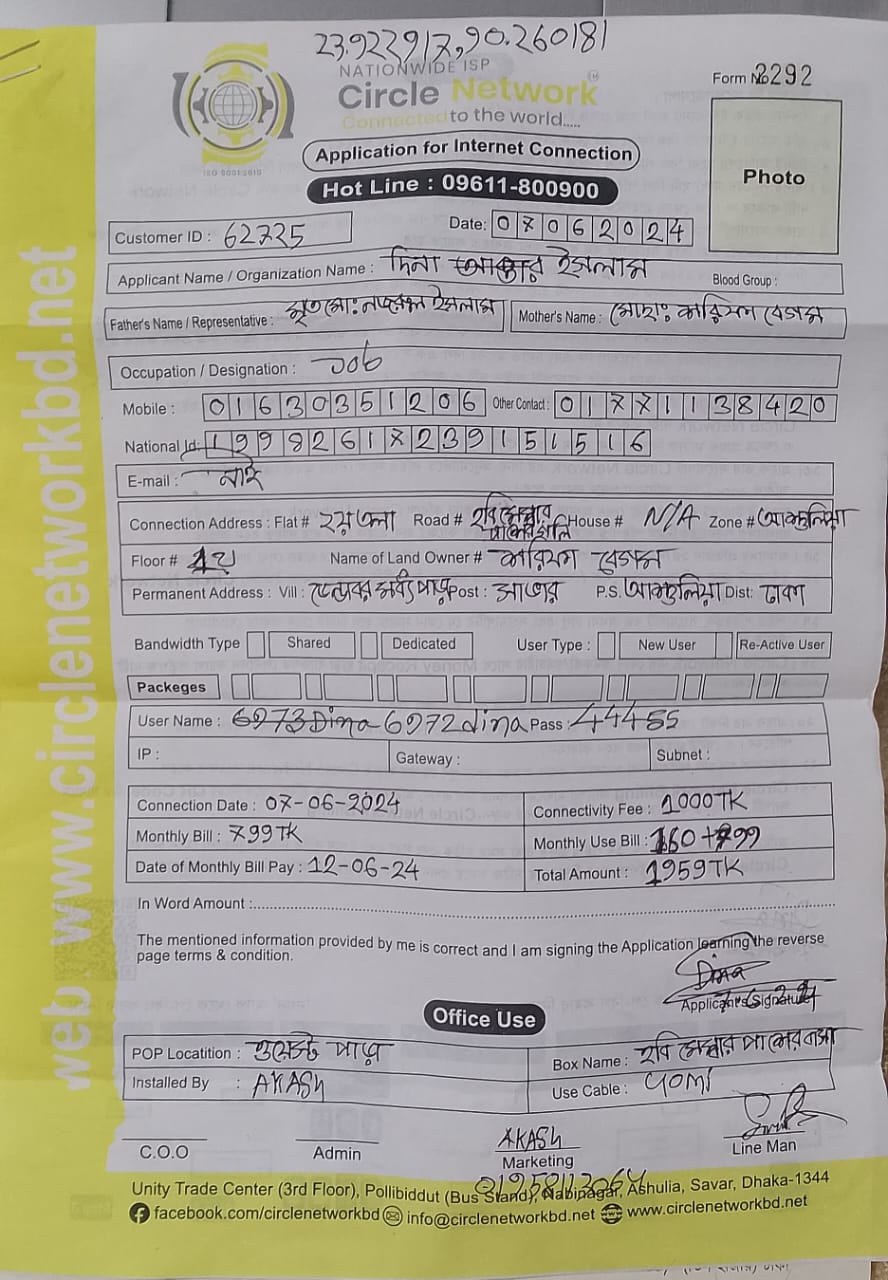 23.922917,90.260181
NATIONWIDE ISP
Circle Network
Connected to the world.....
ISO 9001:2015
Form No 2292
Photo
Application for Internet Connection
Hot Line : 09611-800900
Customer ID : 62725
Date: 07062024
Applicant Name / Organization Name : দিনা আক্তার ইসলাম
Blood Group :
Father's Name / Representative : মৃত মো: ইসলাম
Mother's Name : মোছা: বেগম
Occupation / Designation : Job
Mobile : 01630351206 Other Contact : 01771138420
National Id: 19982617239151516
E-mail : নাই
Connection Address : Flat # ২য় তলা Road # হবি মেম্বার House # N/A Zone # আশুলিয়া
Floor # ২য় Name of Land Owner # বেগম
Permanent Address : Vill : Post : সাভার P.S. আশুলিয়া Dist: ঢাকা
Bandwidth Type Shared Dedicated User Type : New User Re-Active User
Packeges
User Name : 6973Dina 6972dina Pass : 44455
IP : Gateway : Subnet :
Connection Date : 07-06-2024
Connectivity Fee : 1000TK
Monthly Bill : 799TK
Monthly Use Bill : 160+799
Date of Monthly Bill Pay : 12-06-24
Total Amount : 1959TK
In Word Amount :
The mentioned information provided by me is correct and I am signing the Application learning the reverse
page terms & condition.
Dina
Applicant's Signature
Office Use
POP Locatition : পাড়া
Box Name : হবি মেম্বার পাশের বাসা
Installed By : AKASH
Use Cable :
C.O.O
Admin
AKASH
Marketing
Line Man
Unity Trade Center (3rd Floor), Pollibiddut (Bus Stand), Nabinagar, Ashulia, Savar, Dhaka-1344
facebook.com/circlenetworkbd info@circlenetworkbd.net www.circlenetworkbd.net
web www.circlenetworkbd.net